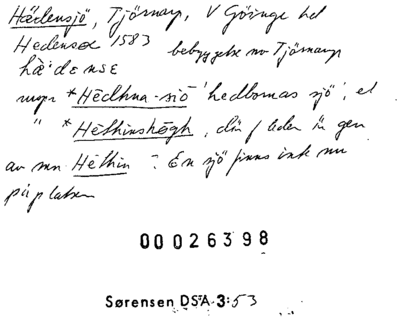 Härlensjö, Tjörnarp, V Göinge hd
Hedensöe 1583 bebyggelse nv Tjörnarp
hä·dɛnsɛ
urspr *Hēdhna-siō 'hedbornas sjö', el
" *Hēthinshøgh, där f leden är gen
av mn Hēthin? En sjö finns inte nu
på platsen
00026398
Sørensen DSÅ 3:53